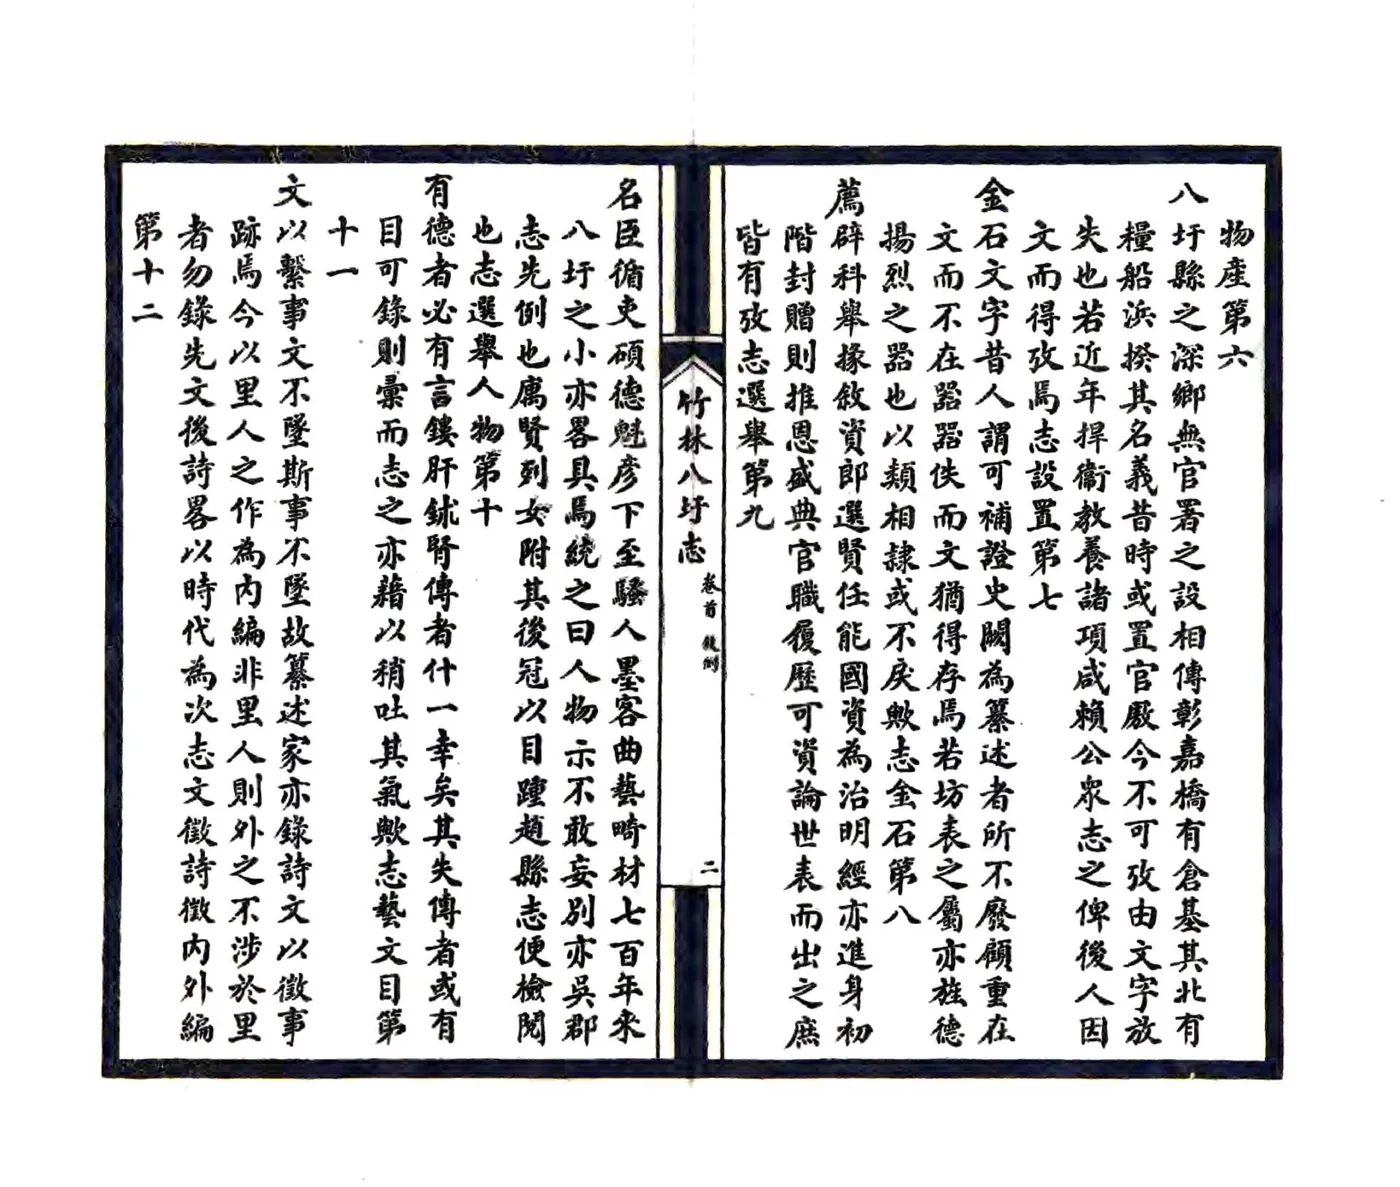 物產第六
八圩縣之深鄉無官署之設相傳彰嘉橋有倉基其北有
糧船浜揆其名義昔時或置官廒今不可攷由文字放
失也若近年捍衞教養諸項咸賴公眾志之俾後人因
文而得攷焉志設置第七
金石文字昔人謂可補證史闕為纂述者所不廢顧重在
文而不在器器佚而文猶得存焉若坊表之屬亦旌德
揚烈之器也以類相隸或不戾歟志金石第八
薦辟科舉掾敘資郎選賢任能國資為治明經亦進身初
階封贈則推恩盛典官職履歷可資論世表而出之庶
皆有攷志選舉第九
竹林八圩志
卷首
二
名臣循吏碩德魁彥下至騷人墨客曲藝畸材七百年來
八圩之小亦畧具焉統之曰人物示不敢妄別亦吳郡
志先例也厲賢列女附其後冠以目踵趙縣志便檢閱
也志選舉人物第十
有德者必有言鏤肝鉥腎傳者什一幸矣其失傳者或有
目可錄則彙而志之亦藉以稍吐其氣歟志藝文目第
十一
文以繫事文不墜斯事不墜故纂述家亦錄詩文以徵事
跡焉今以里人之作為內編非里人則外之不涉於里
者勿錄先文後詩畧以時代為次志文徵詩徵內外編
第十二